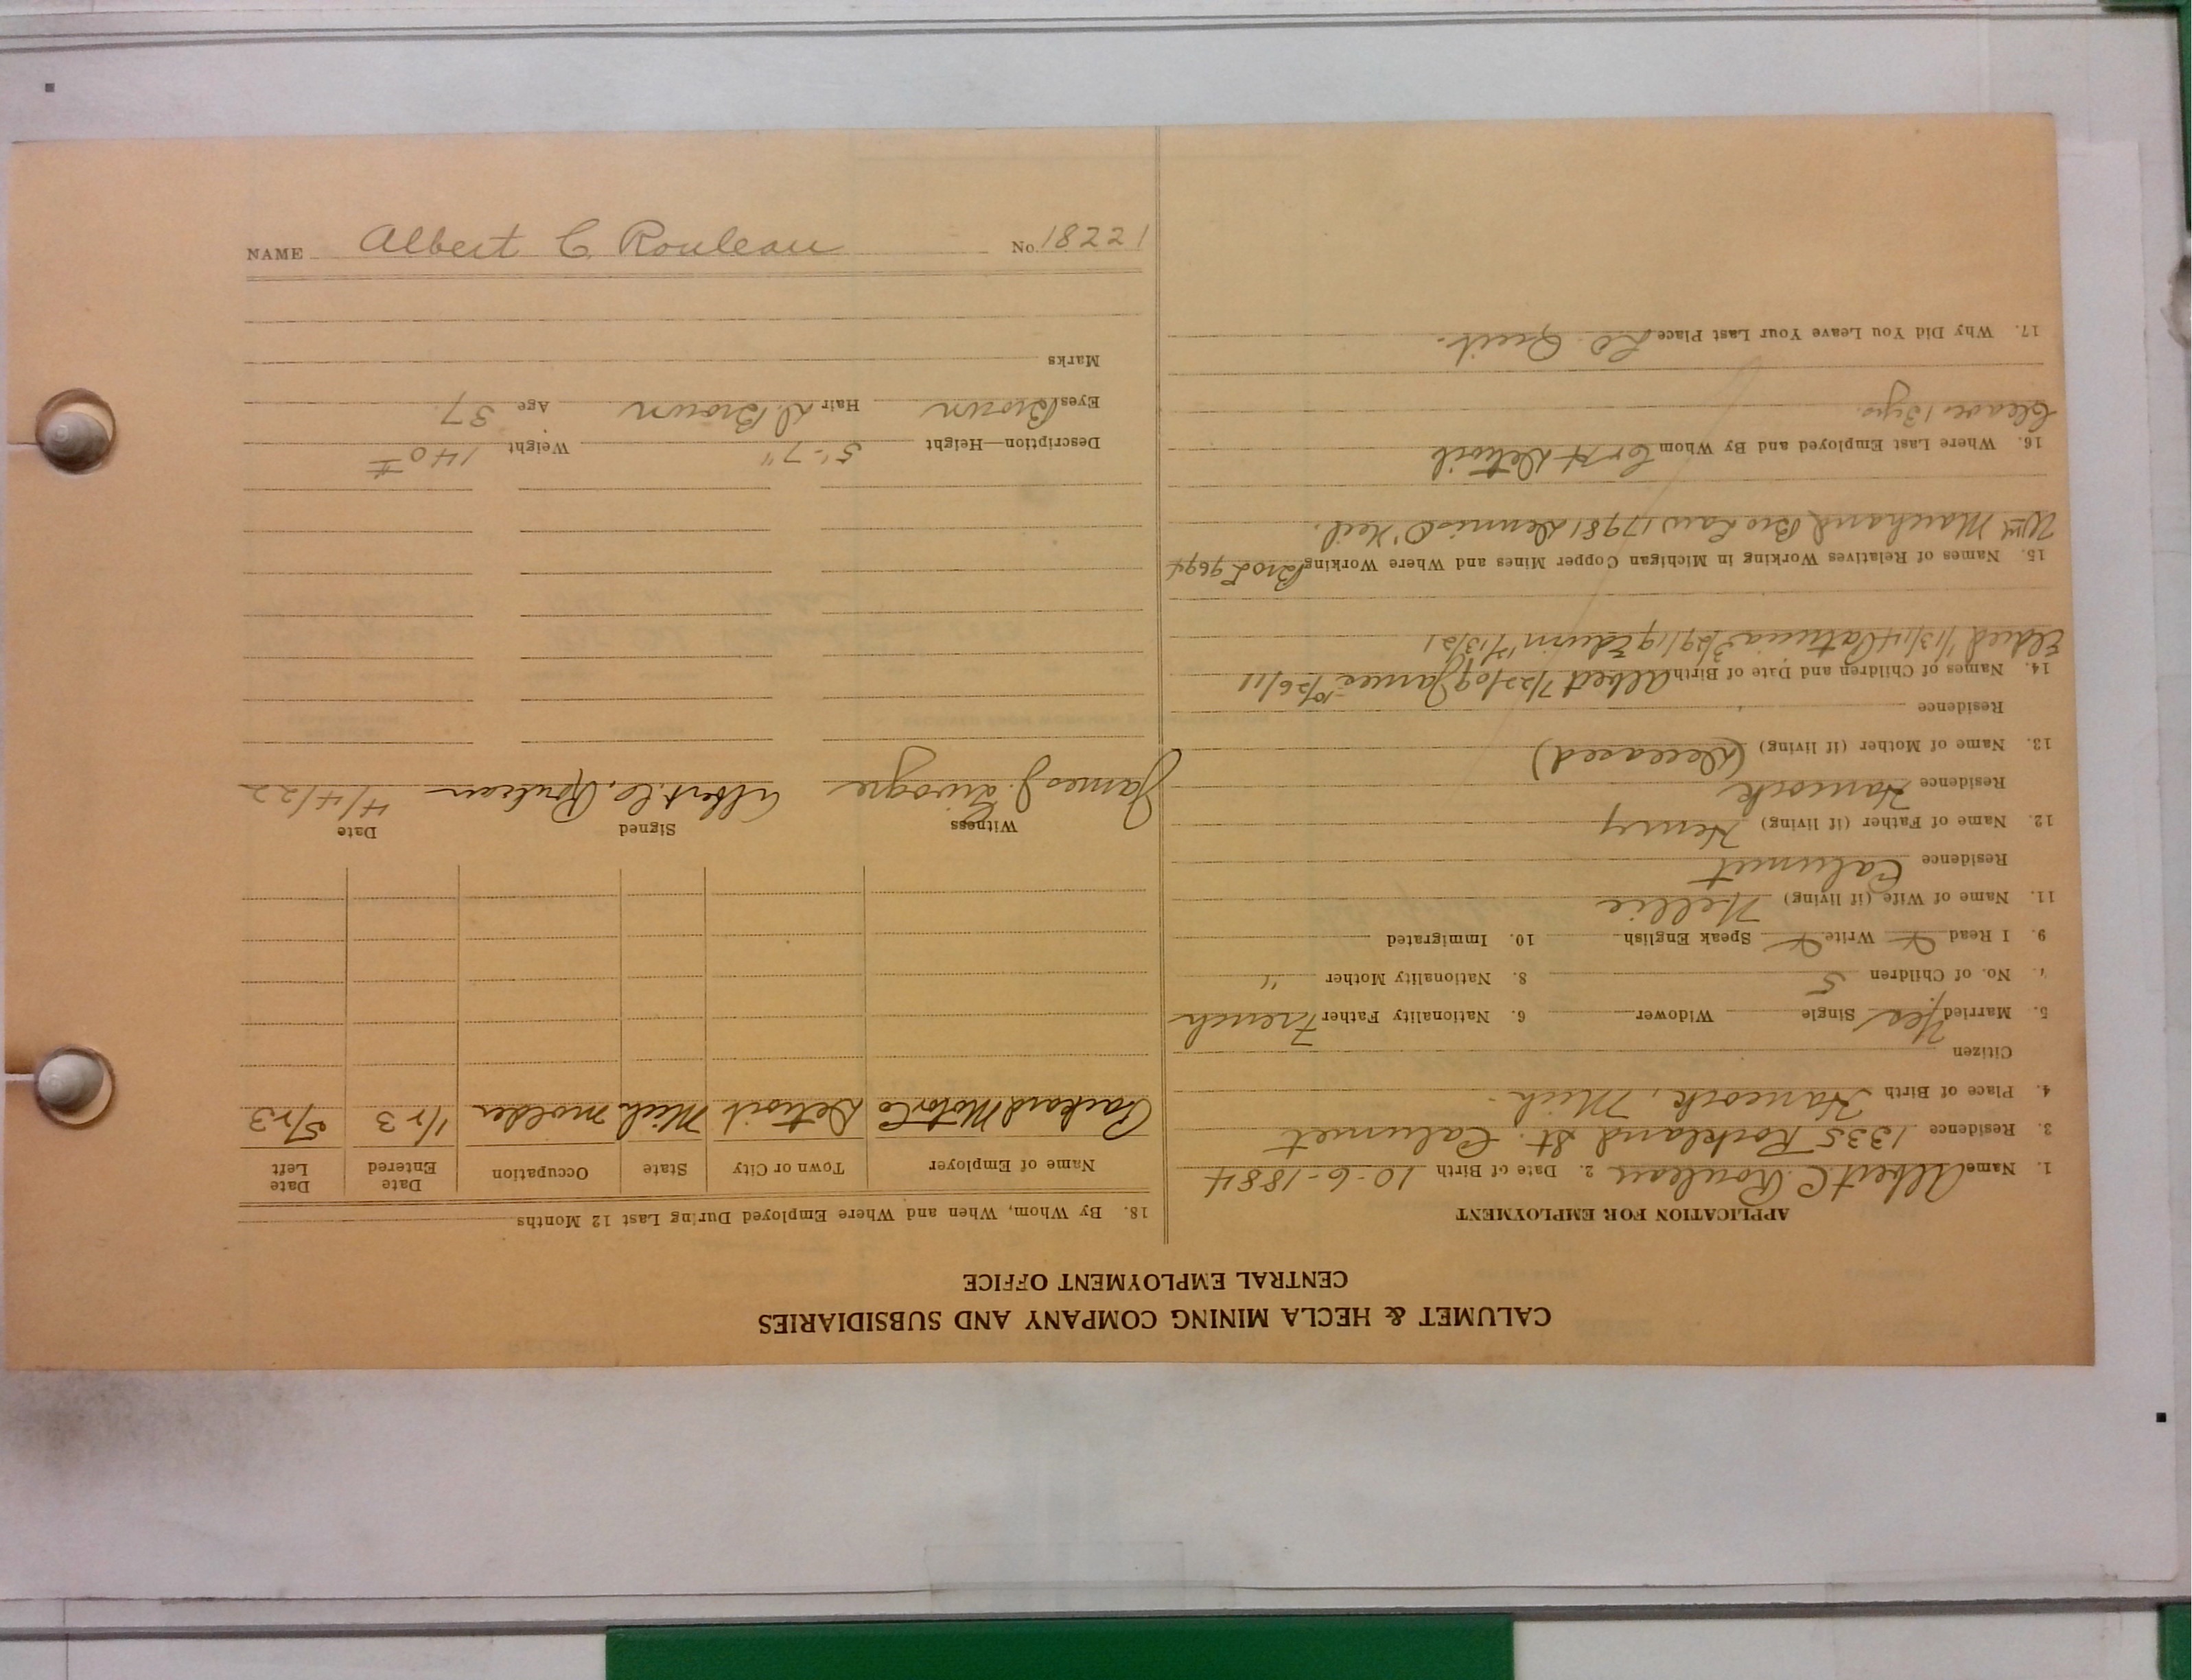 CALUMET & HECLA MINING COMPANY AND SUBSIDIARIES
CENTRAL EMPLOYMENT OFFICE
APPLICATION FOR EMPLOYMENT
1. Name Albert C. Rouleau 2. Date of Birth 10-6-1884
3. Residence 1335 Rockland St. Calumet
4. Place of Birth Hancock, Mich.
Citizen
5. Married Yes Single Widower 6. Nationality Father French
7. No. of Children 5 8. Nationality Mother "
9. I Read Write Speak English 10. Immigrated
11. Name of Wife (if living) Nellie
Residence Calumet
12. Name of Father (if living) Henry
Residence Hancock
13. Name of Mother (if living) (Deceased)
Residence
14. Names of Children and Date of Birth Albert 7/22/09 James 10/26/11
1/13/14 Patricia 3/29/19 Edwin 7/13/21
15. Names of Relatives Working in Michigan Copper Mines and Where Working Bro L 9694
Wm Marchand Bro Law 17981 Dennis O'Neil.
16. Where Last Employed and By Whom C & H Detroit
13 yrs.
17. Why Did You Leave Your Last Place Quit.
18. By Whom, When and Where Employed During Last 12 Months
Name of Employer Town or City State Occupation Date Entered Date Left
Packard Motor Co Detroit Mich molder 1/23 5/23
Witness Signed Date
James J. Albert C. Rouleau 4/4/22
Description—Height 5'-7" Weight 140 #
Eyes Brown Hair D. Brown Age 37
Marks
NAME Albert C Rouleau No. 18221